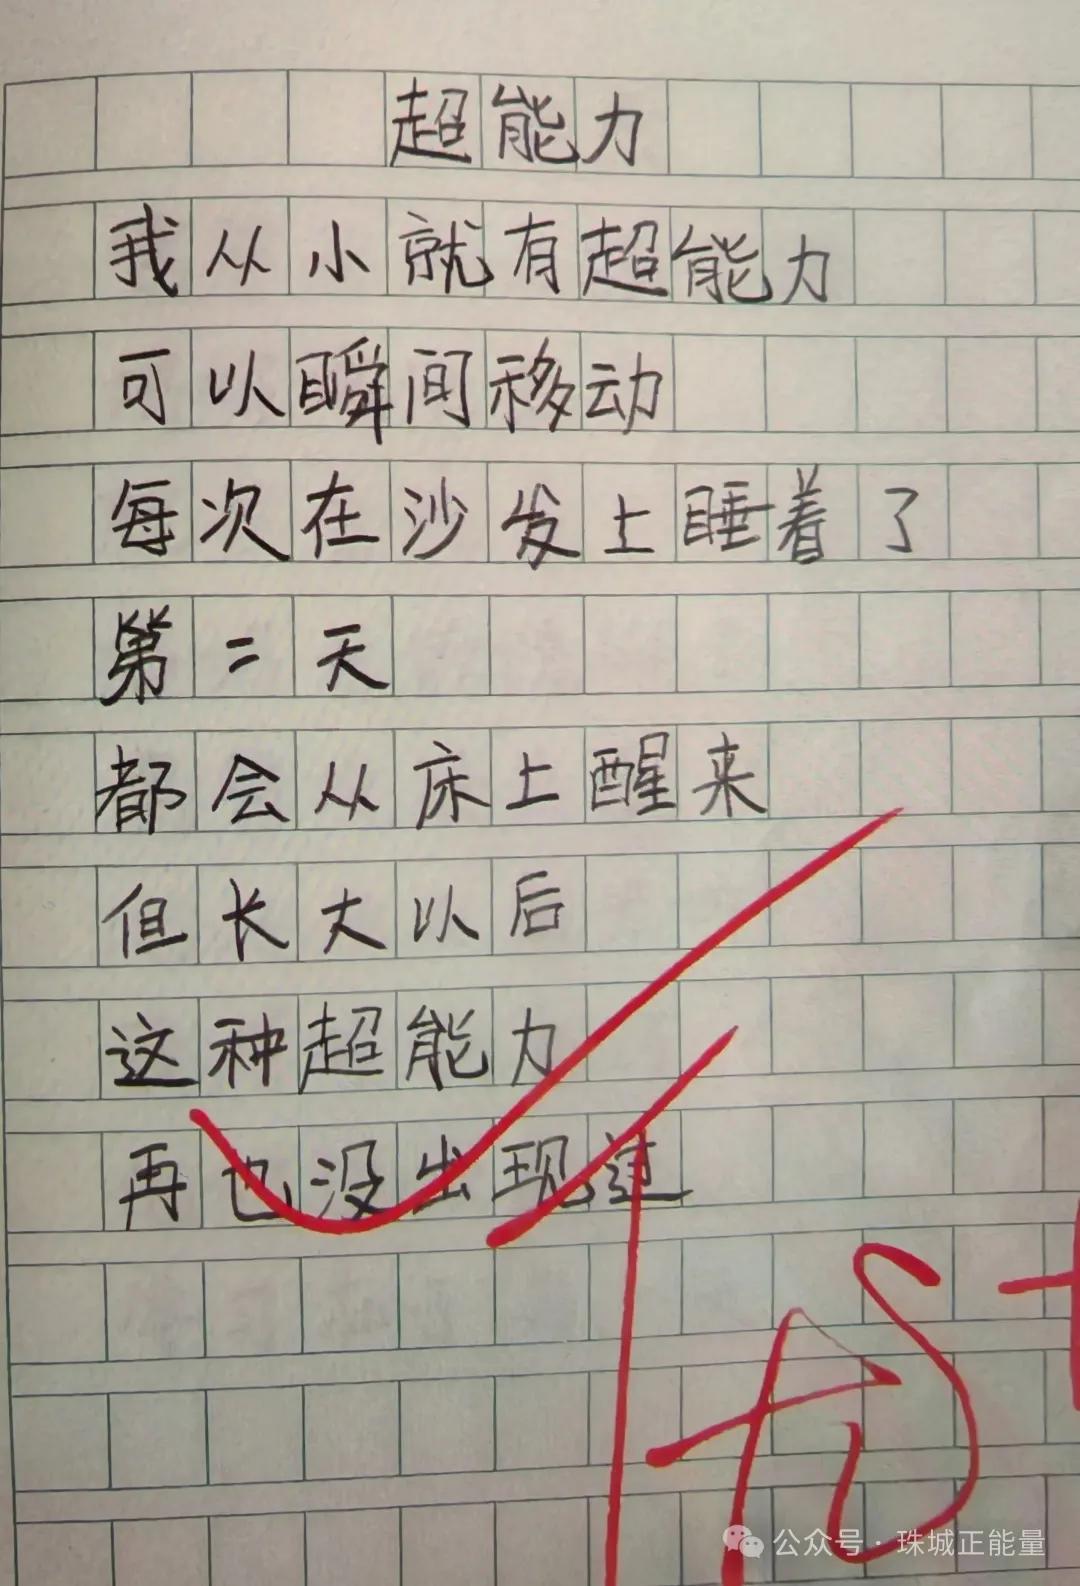 超能力
我从小就有超能力
可以瞬间移动
每次在沙发上睡着了
第二天
都会从床上醒来
但长大以后
这种超能力
再也没出现过
优+
公众号·珠城正能量